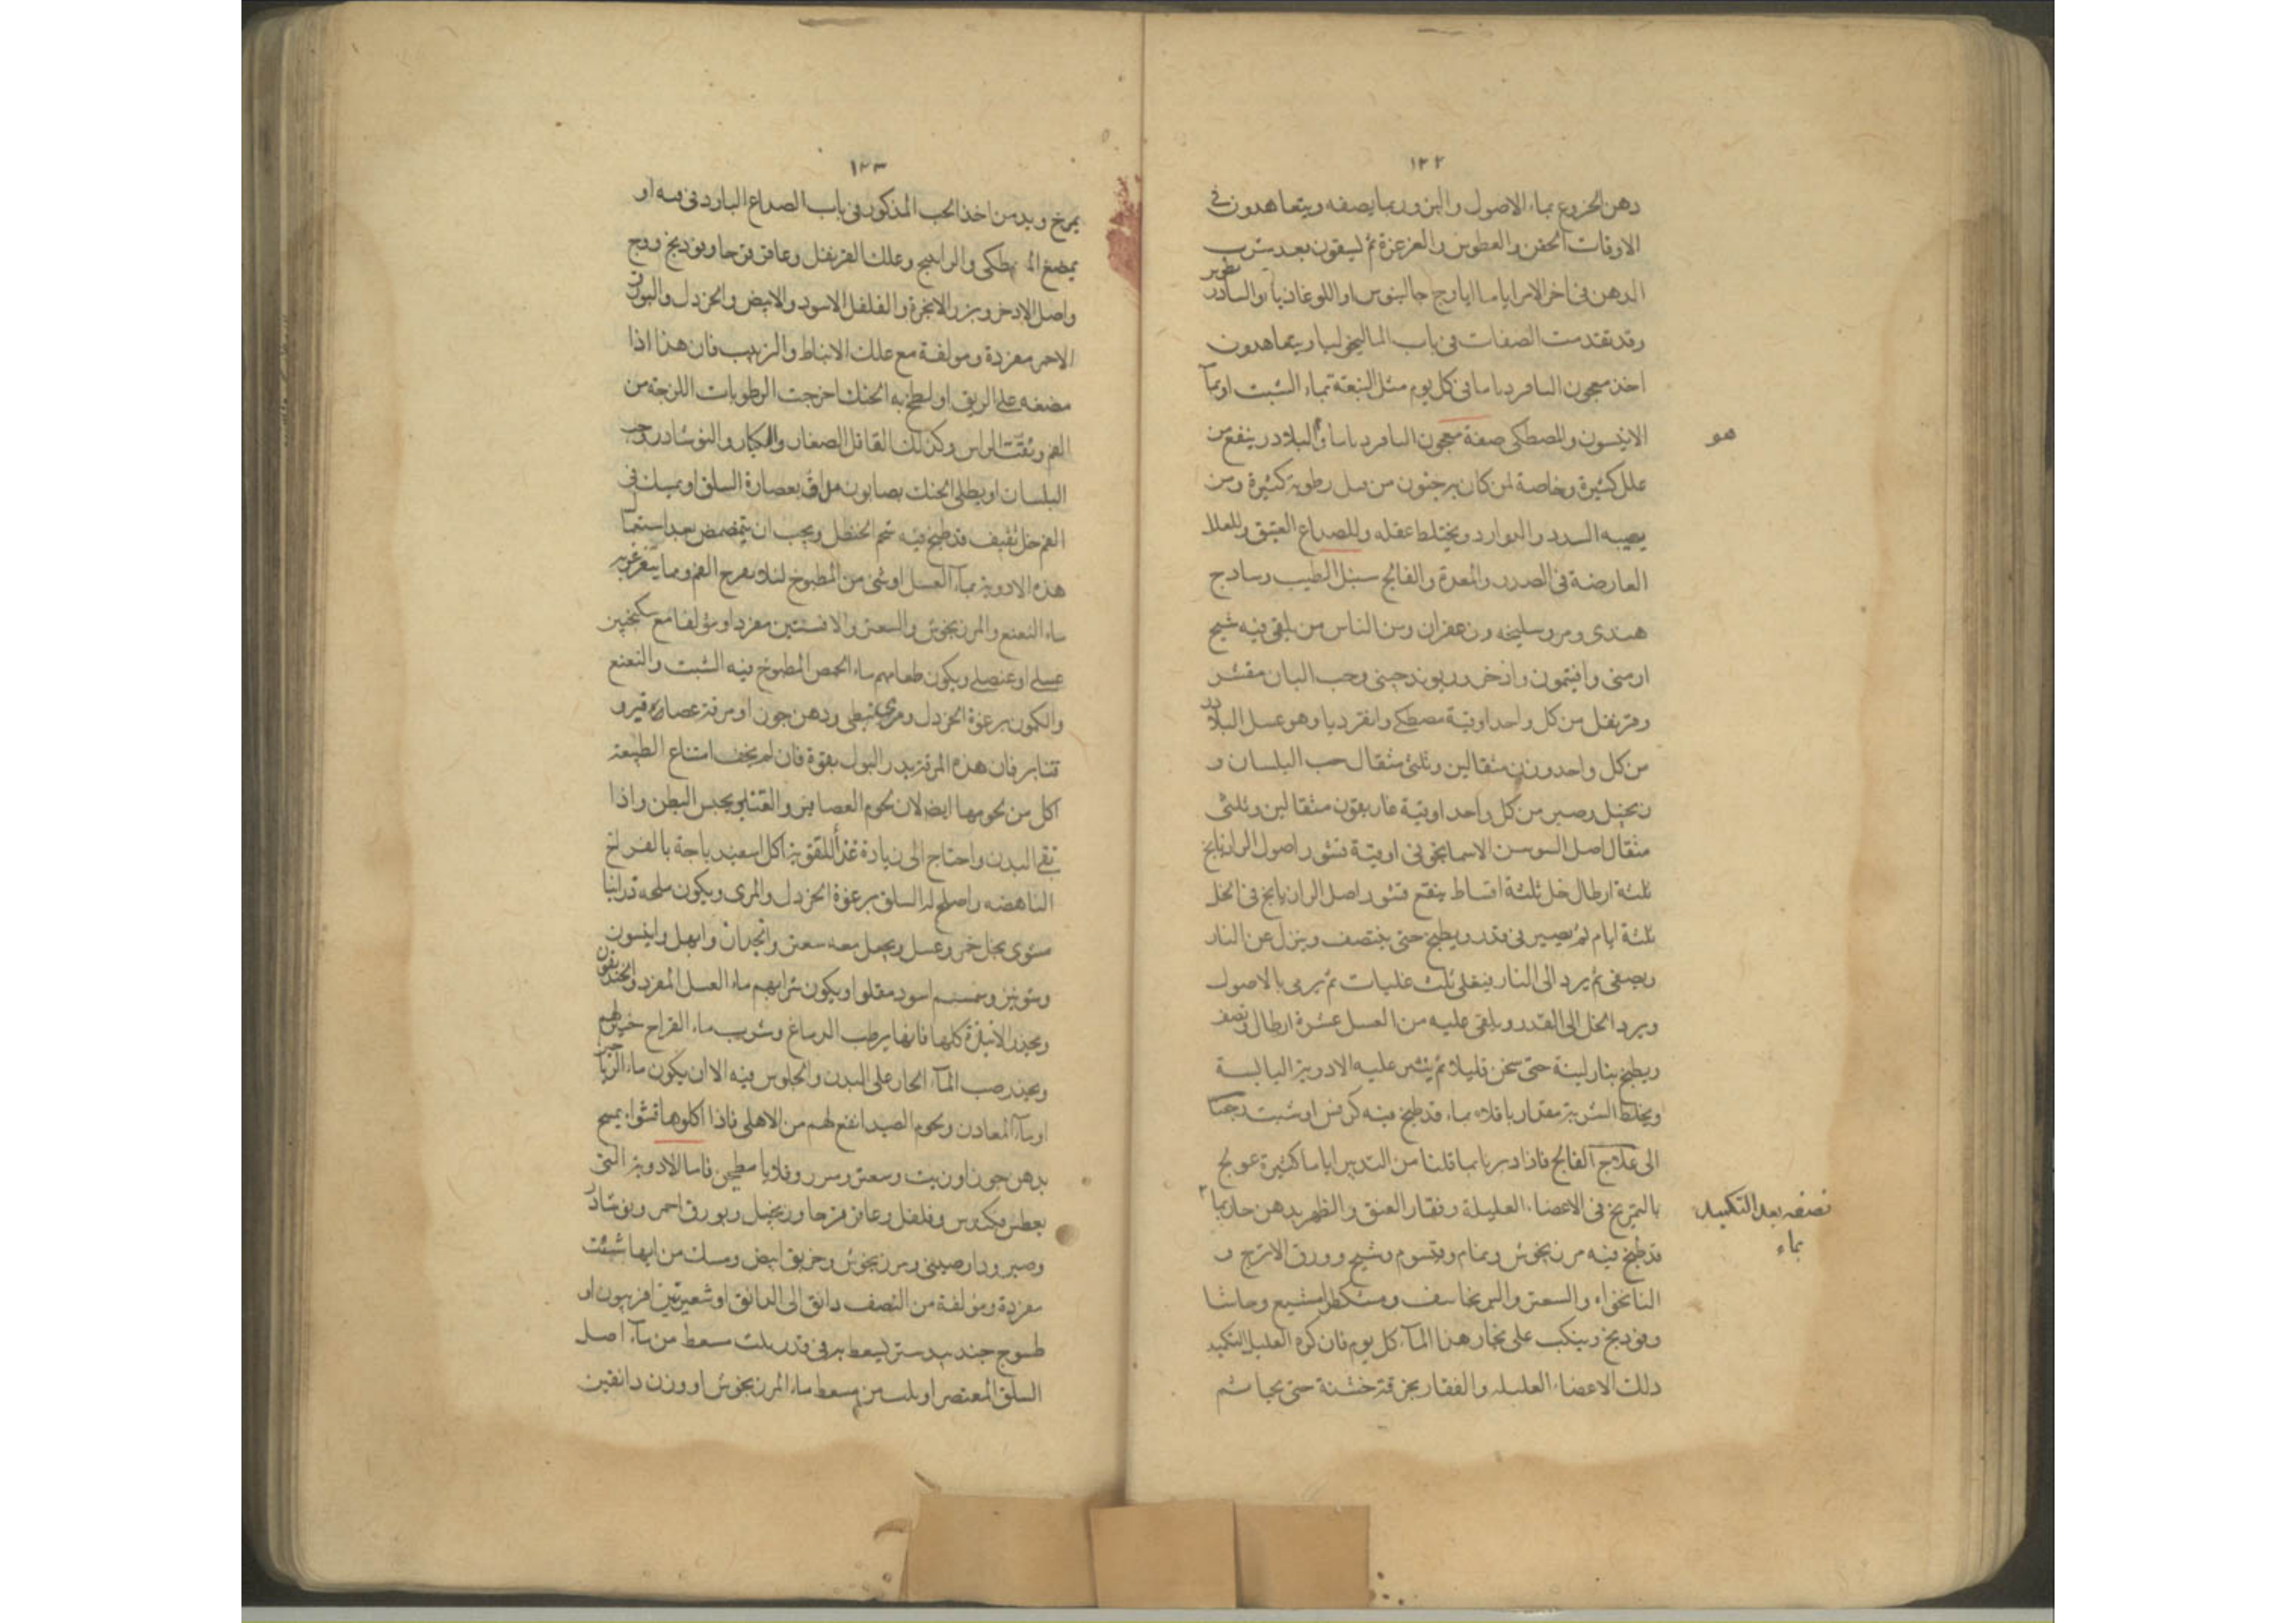 ١٢٢
دهن الخروع بماء الاصول والبزور بما يصفه ويتعاهدون في
الاوقات الحقن والعطوس والغرغرة ثم ليسقون بعد شرب
الدهن في اخر الامر اياما ايارج جالينوس او اللوغاذيا والسادر
بطوس
وقد تقدمت الصفات في باب الماليخوليا ويتعاهدون
اخذ معجون السافرد ياما في كل يوم مثل النبقة بماء الشبت او بمآ
الانيسون والمصطكى صفة معجون السافرد ياسا والبلادر ينفع من
هو
علل كثيرة وخاصة لمن كان به جنون من رطوبة كثيرة ومن
يصيبه السدد والبوارد ويختلط عقله وللصداع العتيق وللعلل
العارضة في الصدر والمعدة والفالج سنبل الطيب وسادج
هندى ومر وسليخه وزعفران ومن الناس من يلقى فيه شيح
ارمنى وافيتمون واذخر وريوند صينى وحب البان مقشر
وقرنفل من كل واحد اوقية مصطكى وانقرديا وهو عسل البلادر
من كل واحد وزن مثقالين وثلثى مثقال حب البلسان و
زنجبيل وصبر من كل واحد اوقية غاريقون مثقالين وثلثى
مثقال اصل السوسن الاسمانجوني اوقية قشور اصول الرازيانج
ثلثة ارطال خل ثلثة اقساط ينقع قشور اصل الرازيانج في الخل
ثلثة ايام ثم يصير في قدر ويطبخ حتى ينتصف وينزل عن النار
ويصفى ثم يرد الى النار فيغلى ثلث غليات ثم يرمى بالاصول
ويرد الخل الى القدر ويلقى عليه من العسل عشرة ارطال ونصف
ويطبخ بنار لينة حتى سخن قليلا ثم ينثر عليه الادوية اليابسة
ويخلط الشربة مقدار باقلاه بماء قد طبخ فيه كرفس او شبت رجعنا
الى علاج الفالج فاذا دبر بما قلنا من التدبير اياما كثيرة عولج
بالتمريخ في الاعضاء العليلة وفقار العنق والظهر بدهن حار بما
نصفه بعد التكميد
بماء
قد طبخ فيه مرزنجوش ونمام وقيسوم وشيح وورق الاترج و
النانخواه والسعتر والبرنجاسف ومشكطرامشيع وحاشا
وفوذنج وينكب على بخار هذا المآء كل يوم فان كره العليل التكميد
دلك الاعضاء العليله والفقار بخرقة خشنة حتى يحما ثم
١٢٣
يمرخ وبد من اخذ الحب المذكور في باب الصداع البارد في فمه او
يمضغ المصطكى والراتينج وعلك القرنفل وعاقر قرحا وبوذنج ووج
واصل الاذخر وبزر الانجرة والفلفل الاسود والابيض والخردل والبورق
الاحمر مفردة ومولفة مع علك الانباط والزبيب فان هذا اذا
مضغه على الريق او لطخ به الحنك اخرجت الرطوبات اللزجة من
الفم ونقت الراس وكذلك القاقل الصغار والكبار والنوشادر وحب
البلسان او يطلى الحنك بصابون مداف بعصارة السلق او يمسك في
الفم خل ثقيف قد طبخ فيه شحم الحنظل ويجب ان يتمضمض بعد استعما
ل هذه الادوية بمآء العسل او شى من المطبوخ لئلا يقرح الفم ومما يتغرغر به
ماء النعنع والمرزنجوش والسعتر والافسنتين مفرد او مولفا مع سكنجبين
عسلى او عنصلى ويكون طعامهم ماء الحمص المطبوخ فيه الشبت والنعنع
والكمون برغوة الخردل ومرى نبطى ودهن جوز او مرقة عصافير و
قنابر فان هذه المرقة يدر البول بقوة فان لم يخف امتناع الطبيعة
اكل من لحومها ايضا لان لحوم العصافير والقنابر يحبس البطن واذا
نقى البدن واحتاج الى زيادة غذآ للقوة اكل اسفيدباجة بالفراخ
الناهضه واصلح له السلق برغوة الخردل والمرى ويكون ملحه درانيا
مشوى بخل خمر وعسل ويجعل معه سعتر وانجدان وابهل وانيسون
وشونيز وسمسم اسود مقلو او يكون شرابهم ماء العسل المفرد والخنديقون
ويحذر الانبذة كلها فانها يرطب الدماغ وشرب ماء القراح خير لهم
ويحذر صب المآء الحار على البدن والجلوس فيه الا ان يكون ماء الرياحين
او مآء المعادن ولحوم الصيد انفع لهم من الاهلى فاذا اكلوها قشوا بمسح
بدهن جوز او زيت وسعتر وقلايا مطجن فاما الادوية التى
يعطس فكندس وفلفل وعاقر قرحا وزنجبيل وبورق احمر ونوشادر
وصبر ودارصينى ومرزنجوش وخربق ابيض ومسك من ايها شئت
مفردة ومولفة من النصف دانق الى الدانق او شعيرتين افربيون او
طسوج جندبيدستر يسعط به في قدر ثلث مسعط من مآء اصل
السلق المعتصر او بلسين مسعط ماء المرزنجوش او وزن دانقين